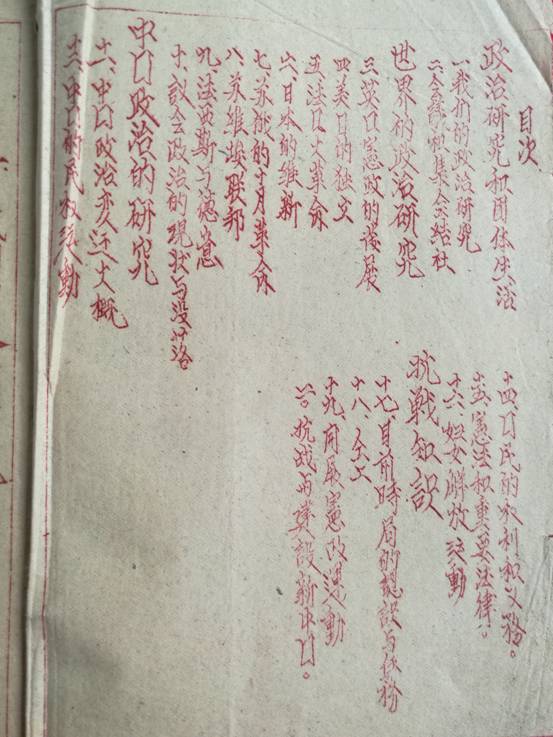 目次
政治研究和团体生活
一、我们的政治研究
二、会议和集会结社
世界的政治研究
三、英囗宪政的发展
四、美囗的独立
五、法囗大革命
六、日本的维新
七、苏俄的十月革命
八、苏维埃联邦
九、法西斯与德意
十、议会政治的现状与没落
中囗政治的研究
十一、中囗政治变迁大概
十二、中囗的民权运动
十四、囗民的权利和义务。
十五、憲法和重要法律。
十六、妇女解放运动
抗戰知识
十七、目前時局的认识与任务
十八、仝上
十九、开展憲政運動
二〇、抗战与建設新中囗。